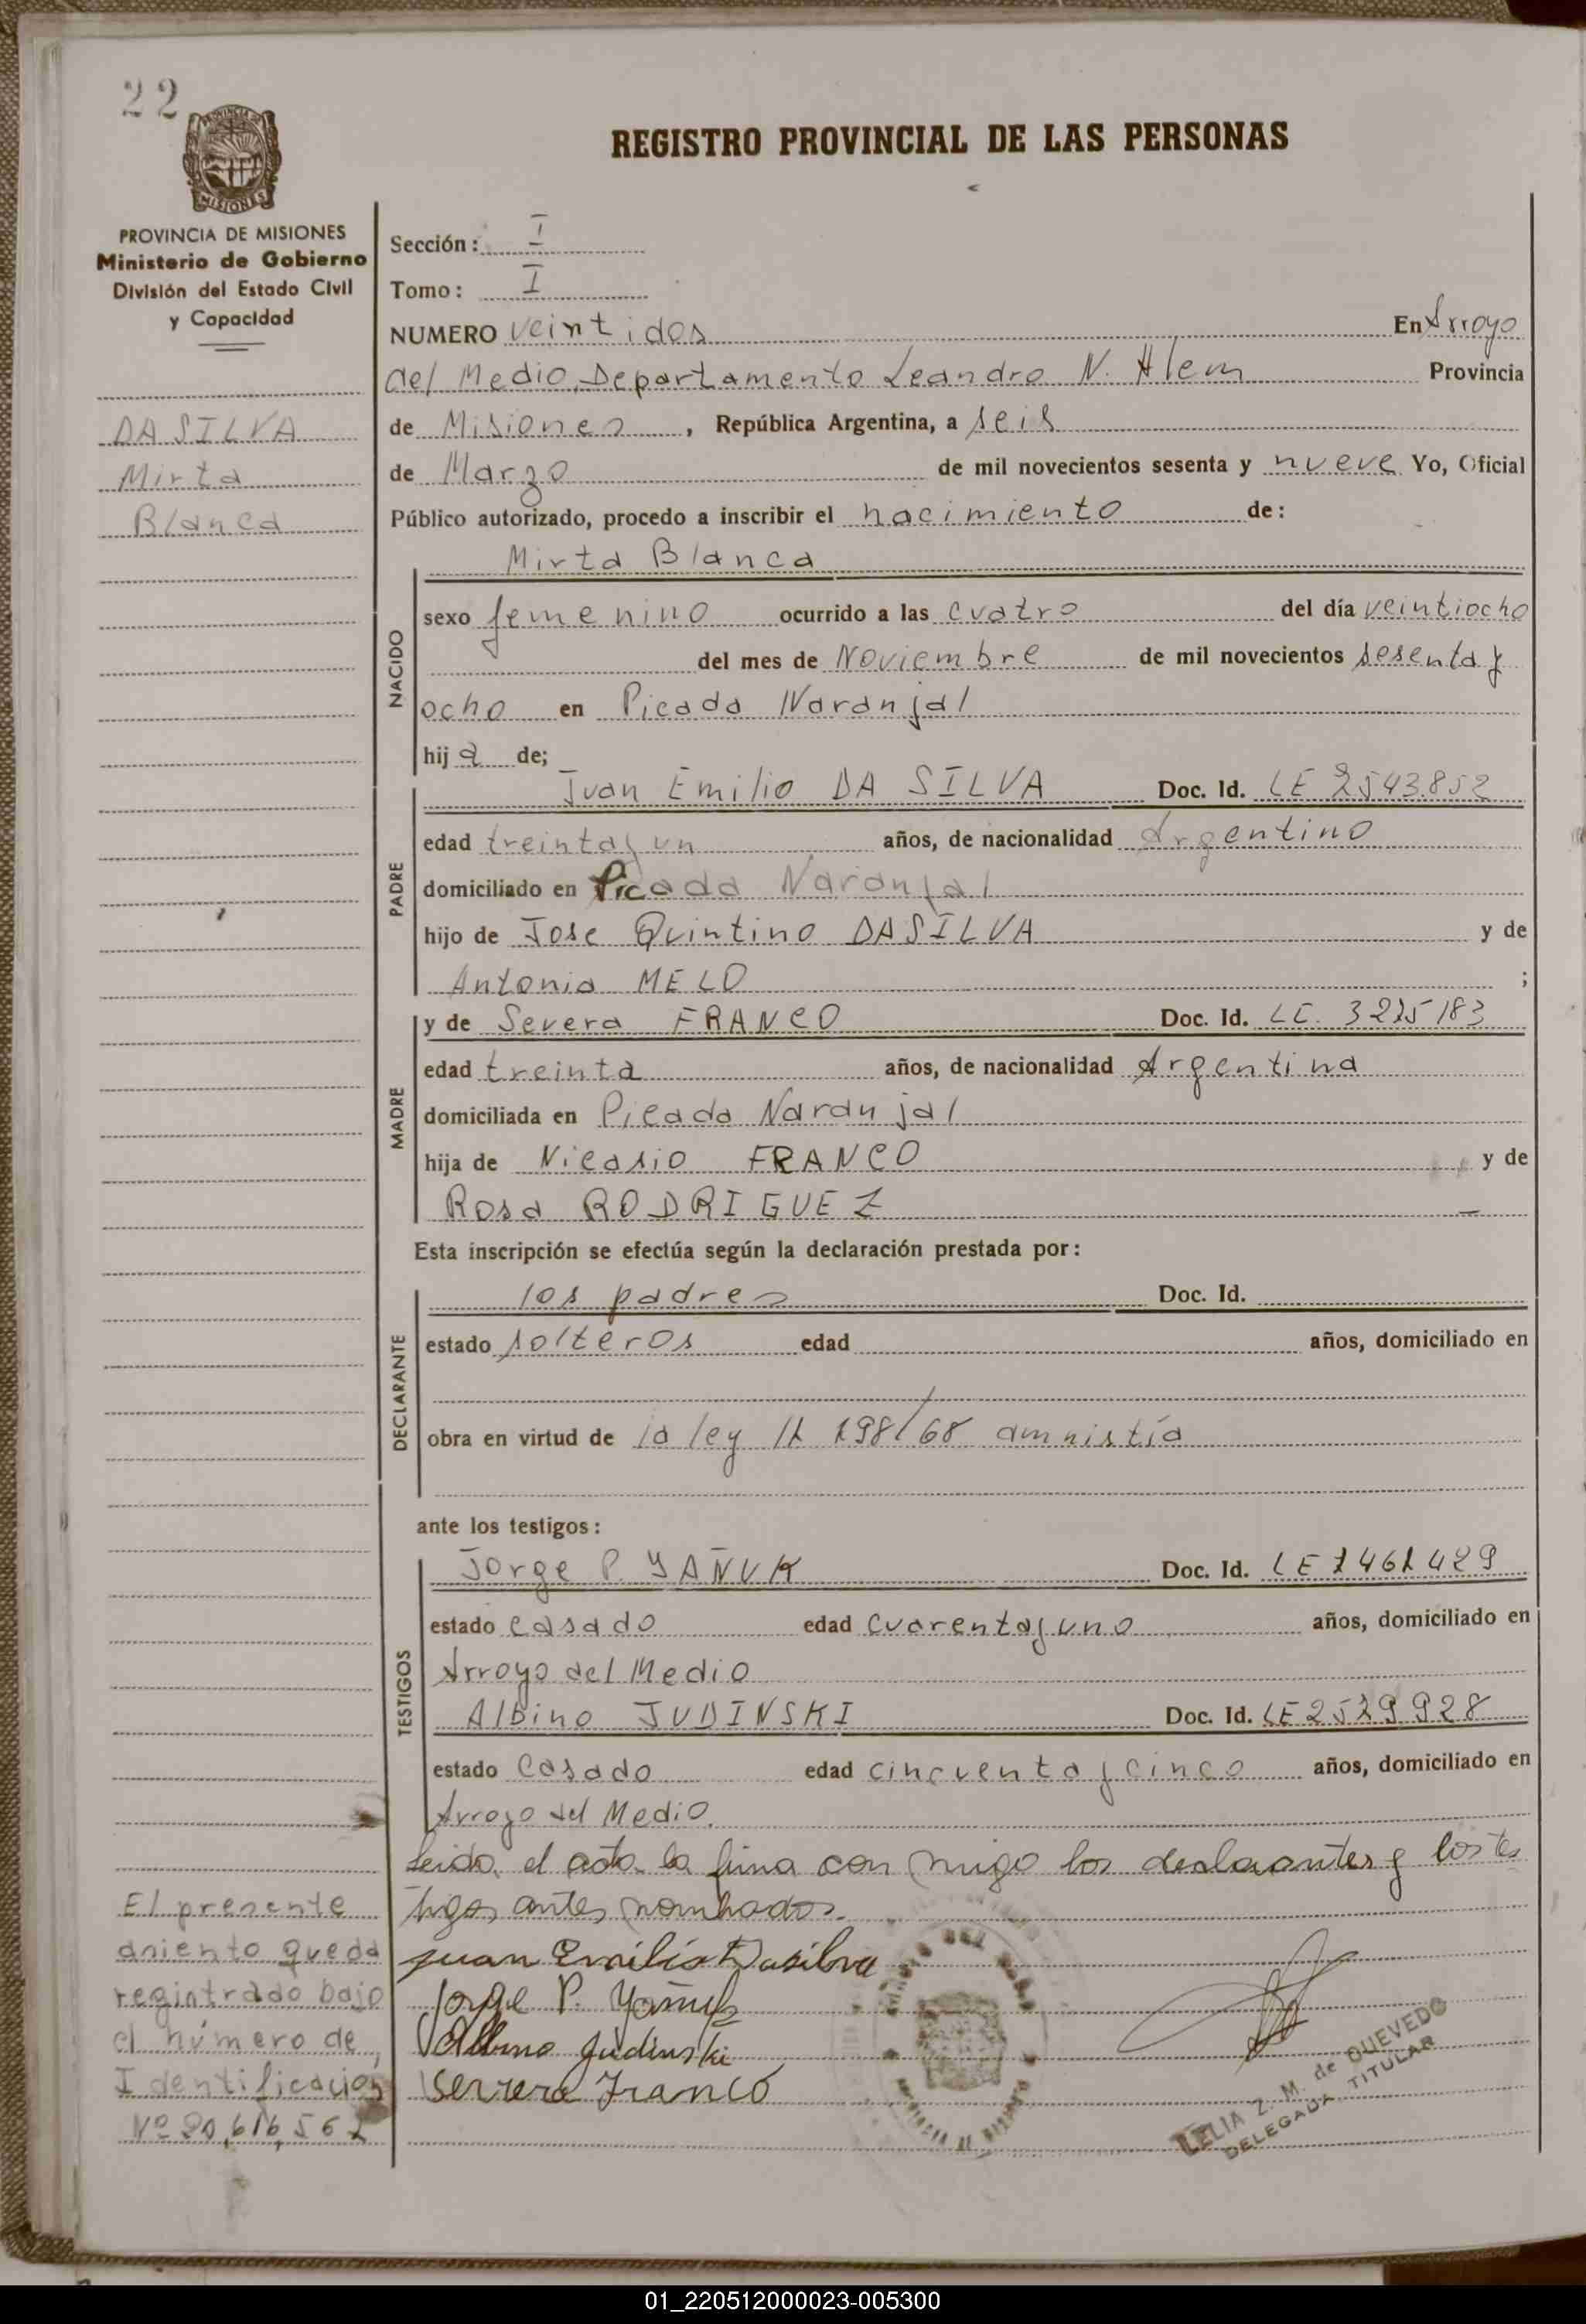 22
PROVINCIA DE MISIONES
Ministerio de Gobierno
División del Estado Civil
y Capacidad
DA SILVA
Mirta
Blanca
El presente
asiento queda
registrado bajo
el número de
Identificación
REGISTRO PROVINCIAL DE LAS PERSONAS
Sección: I
Tomo: I
NUMERO veintidos En Arroyo
del Medio, Departamento Leandro N. Alem Provincia
de Misiones, República Argentina, a seis
de Marzo de mil novecientos sesenta y nueve Yo, Oficial
Público autorizado, procedo a inscribir el nacimiento de:
NACIDO
Mirta Blanca
sexo femenino ocurrido a las cuatro del día veintiocho
del mes de Noviembre de mil novecientos sesenta y
ocho en Picada Naranjal
hija de;
PADRE
Juan Emilio DA SILVA Doc. Id. LE 2543.852
edad treinta y un años, de nacionalidad Argentino
domiciliado en Picada Naranjal
hijo de Jose Quintino DASILVA y de
Antonia MELO ;
MADRE
y de Severa FRANCO Doc. Id. LE. 3225183
edad treinta años, de nacionalidad Argentina
domiciliada en Picada Naranjal
hija de Nicasio FRANCO y de
Rosa RODRIGUEZ
Esta inscripción se efectúa según la declaración prestada por:
DECLARANTE
los padres Doc. Id.
estado solteros edad años, domiciliado en
obra en virtud de la ley 198/68 amnistía
ante los testigos:
TESTIGOS
Jorge P. YAÑUK Doc. Id. LE 1461429
estado casado edad cuarenta y uno años, domiciliado en
Arroyo del Medio
Albino JUDINSKI Doc. Id. LE 2529928
estado Casado edad cincuenta y cinco años, domiciliado en
Arroyo del Medio.
Leida el acta la firma con migo los declarantes y los tes
tigos antes nombrados.
Juan Emilio Dasilva
Jorge P. Yañuk
Albino Judinski
Serrera Franco
LELIA Z. M. de QUEVEDO
DELEGADA TITULAR
01_220512000023-005300